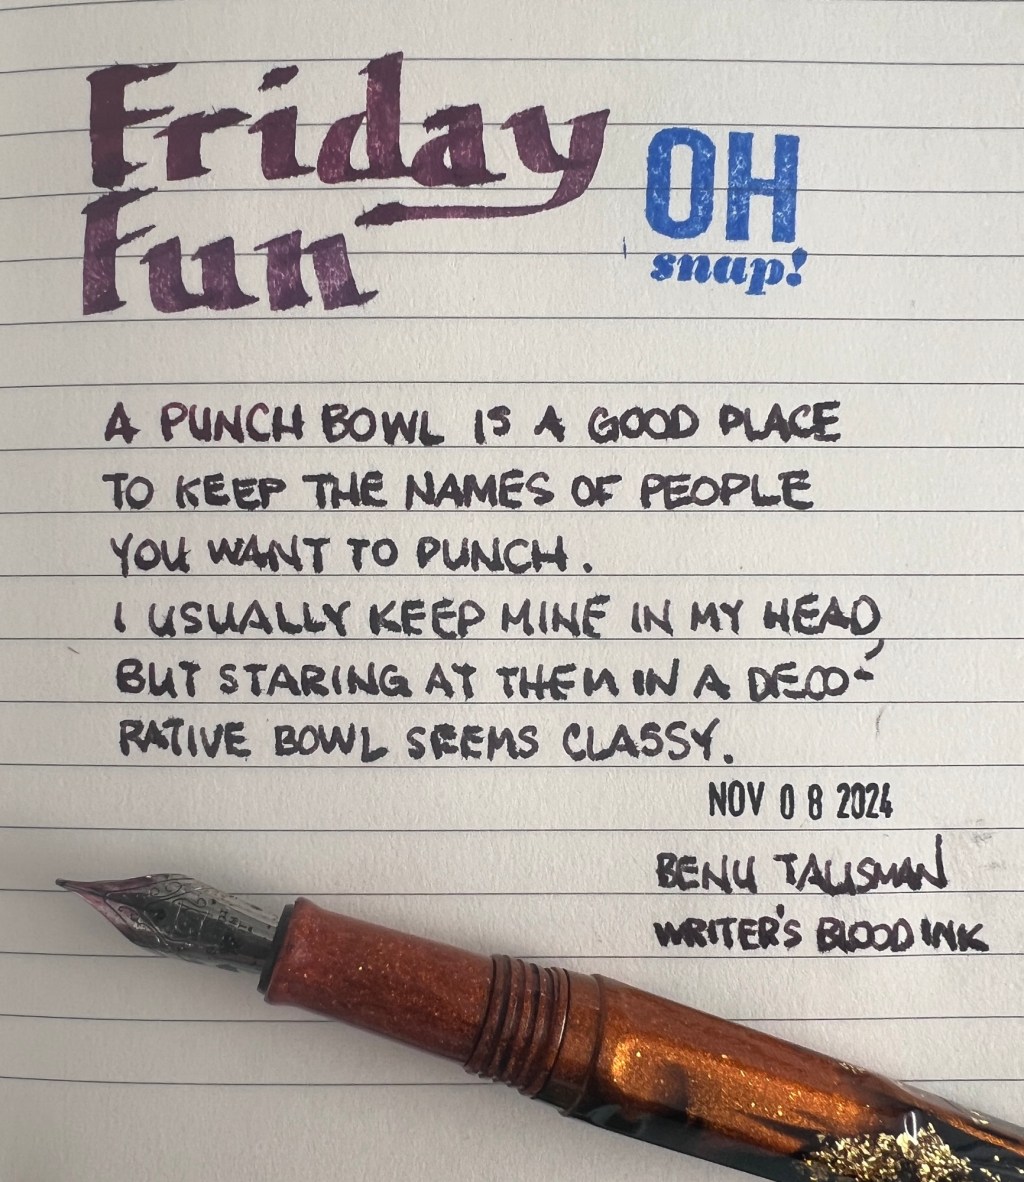 Friday
Fun
OH
snap!
A PUNCH BOWL IS A GOOD PLACE
TO KEEP THE NAMES OF PEOPLE
YOU WANT TO PUNCH.
I USUALLY KEEP MINE IN MY HEAD,
BUT STARING AT THEM IN A DECO-
RATIVE BOWL SEEMS CLASSY.
NOV 08 2024
BENU TALISMAN
WRITER'S BLOOD INK